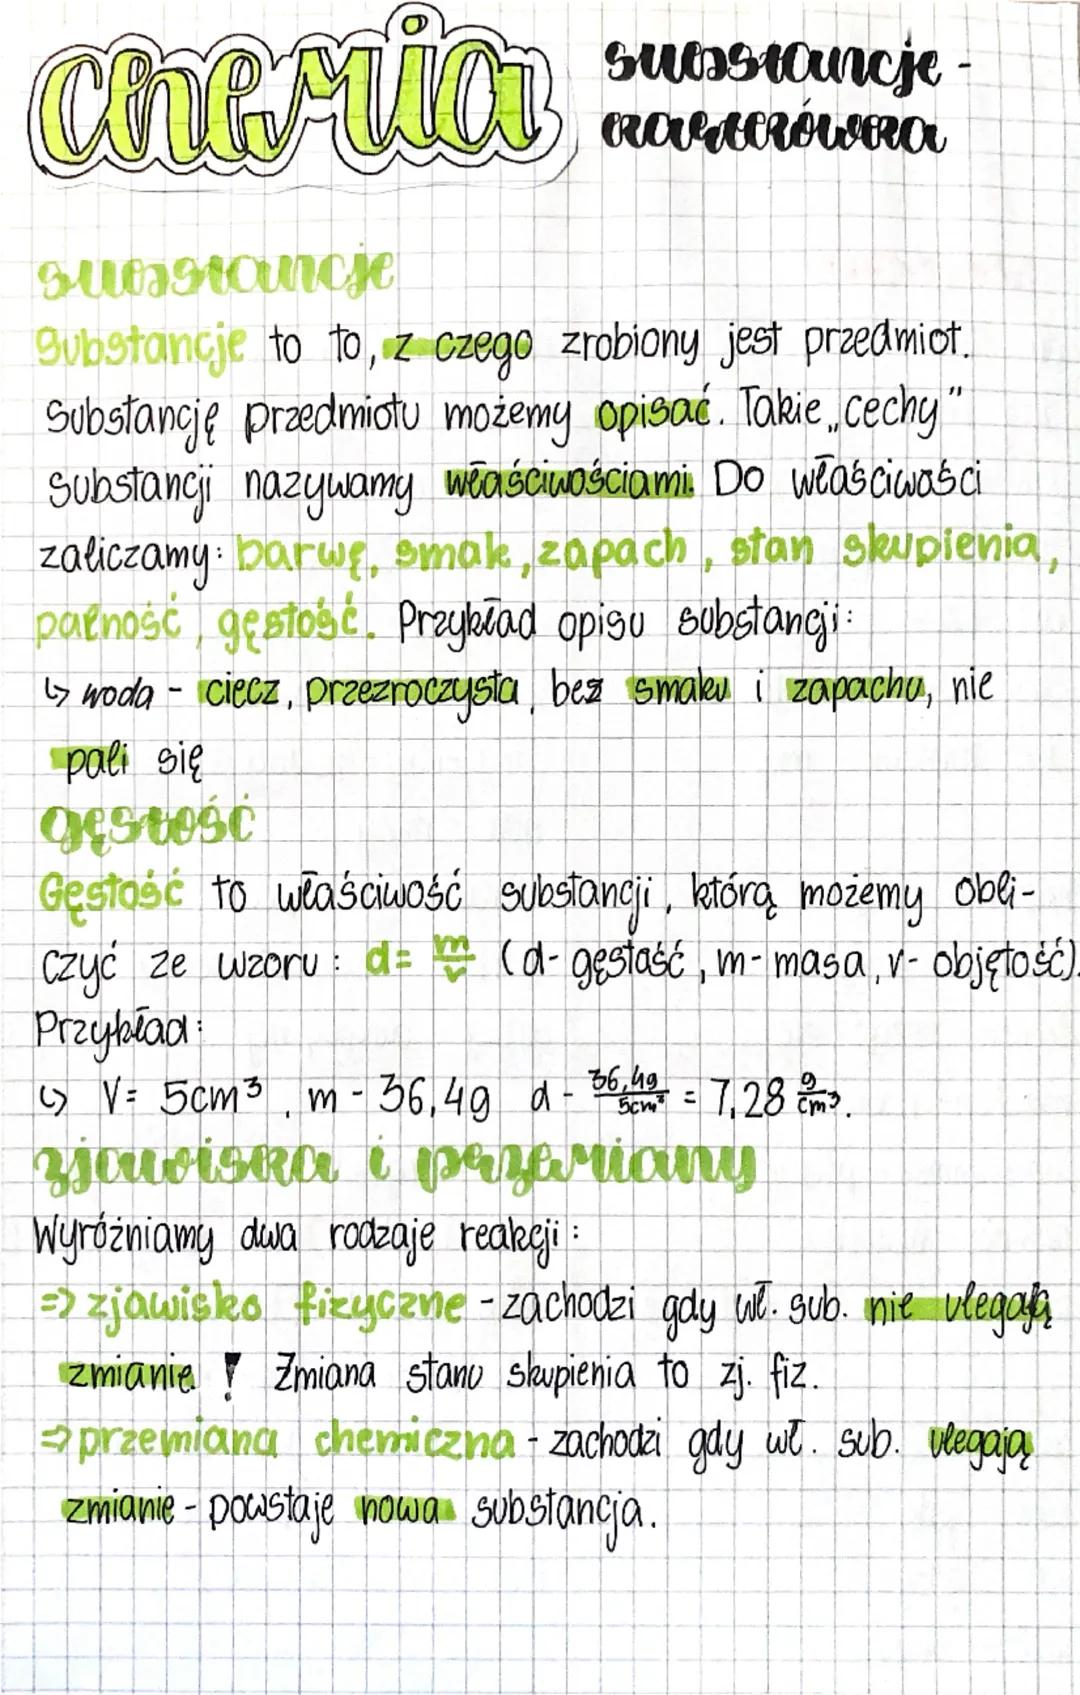 chemia
substancje -
kartkówka
substancje
Substancje to to, z czego zrobiony jest przedmiot.
Substancję przedmiotu możemy opisać. Takie „cechy"
substancji nazywamy właściwościami. Do właściwości
zaliczamy: barwę, smak, zapach, stan skupienia,
palność, gęstość. Przykład opisu substancji:
↳ woda - ciecz, przezroczysta, bez smaku i zapachu, nie
pali się
gęstość
Gęstość to właściwość substancji, którą możemy obli-
czyć ze wzoru: d= m/v (d- gęstość, m- masa, v- objętość).
Przykład:
↳ V= 5cm³, m - 36,4g d - 36,4g/5cm³ = 7,28 g/cm³.
zjawiska i przemiany
Wyróżniamy dwa rodzaje reakcji:
⇒ zjawisko fizyczne - zachodzi gdy wł. sub. nie ulegają
zmianie. ! Zmiana stanu skupienia to zj. fiz.
⇒ przemiana chemiczna - zachodzi gdy wł. sub. ulegają
zmianie - powstaje nowa substancja.